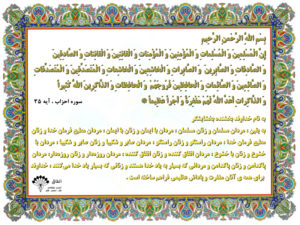 بِسْمِ اللَّهِ الرَّحْمنِ الرَّحِيمِ
إِنَّ الْمُسْلِمِينَ وَ الْمُسْلِماتِ وَ الْمُؤْمِنِينَ وَ الْمُؤْمِناتِ وَ الْقانِتِينَ وَ الْقانِتاتِ وَ الصَّادِقِينَ
وَ الصَّادِقاتِ وَ الصَّابِرِينَ وَ الصَّابِراتِ وَ الْخاشِعِينَ وَ الْخاشِعاتِ وَ الْمُتَصَدِّقِينَ وَ الْمُتَصَدِّقاتِ
وَ الصَّائِمِينَ وَ الصَّائِماتِ وَ الْحافِظِينَ فُرُوجَهُمْ وَ الْحافِظاتِ وَ الذَّاكِرِينَ اللَّهَ كَثِيراً
وَ الذَّاكِراتِ أَعَدَّ اللَّهُ لَهُمْ مَغْفِرَةً وَ أَجْراً عَظِيماً
سوره احزاب ، آیه ۳۵
به نام خداوند بخشنده بخشایشگر
به یقین ، مردان مسلمان و زنان مسلمان ، مردان با ایمان و زنان با ایمان ، مردان مطیع فرمان خدا و زنان
مطیع فرمان خدا ، مردان راستگو و زنان راستگو ، مردان صابر و شکیبا و زنان صابر و شکیبا ، مردان با
خشوع و زنان با خشوع ، مردان انفاق کننده و زنان انفاق کننده ، مردان روزه‌دار و زنان روزه‌دار، مردان
پاکدامن و زنان پاکدامن و مردانی که بسیار به یاد خدا هستند و زنانی که بسیار یاد خدا می‌کنند ، خداوند
برای همه ی آنان مغفرت و پاداش عظیمی فراهم ساخته است .